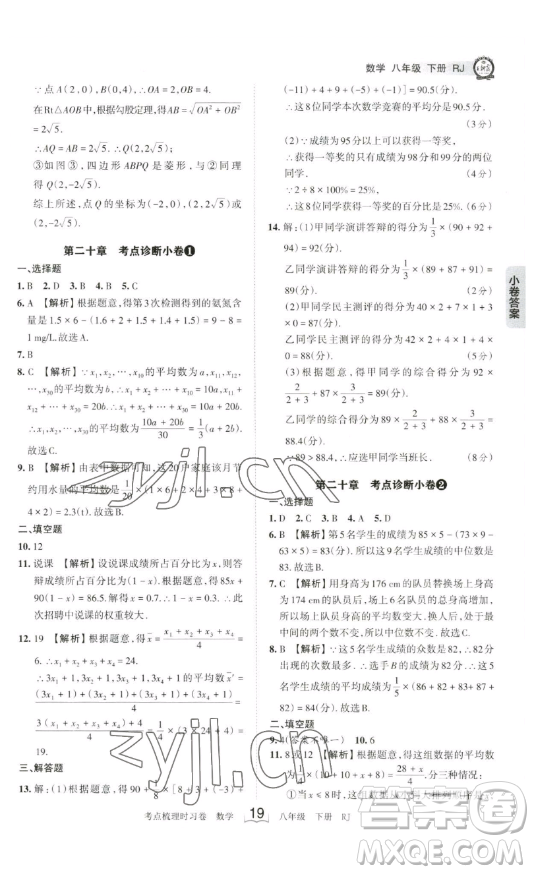 数学 八年级 下册 RJ
∵点A(2,0),B(0,4),∴OA=2,OB=4.
在Rt△AOB中,根据勾股定理,得AB=√(OA²+OB²)
=2√5.
∴AQ=AB=2√5.∴OP=OQ=2√5-2.
∴点P的坐标为(0,2-2√5);
③如图,四边形ABPQ是菱形,与②同理
得OQ=2√5-2.
综上,点Q的坐标为(-2,0),(2√5,
0)或(2-2√5,0).
第二十章 考点诊断小卷❶
一、选择题
1. B 2. D 3. B 4. C 5. B
6. A 【解析】根据题意,得第3次检测得到的氨氮含
量是1.5×6-(1.6+2+1.5+1.4+1.5)=9-8=
1 mg/L.故选A.
7. B
8. C 【解析】∵x₁,x₂,…,x₁₀的平均数为a,x₁₁,
x₁₂,…,x₃₀的平均数为b,∴x₁+x₂+…+x₁₀=10a,x₁₁+
x₁₂+…+x₃₀=20b.∴x₁+x₂+…+x₃₀=10a+20b.
∴x₁,x₂,…,x₃₀的平均数为(10a+20b)/30=1/3(a+2b).
故选C.
9. B 【解析】由表中数据可知,这20户家庭该月节
约用水量的平均数是1/20×(1×6+2×4+3×8+
4×2)=2.3(t).故选B.
二、填空题
10. 12
11. 说课 【解析】设说课成绩所占百分比为x,则答
辩成绩所占百分比为(1-x).根据题意,得85x+
90(1-x)=86.5.解得x=0.7.∴1-x=0.3.∴此
次招聘中说课的权重较大.
12. 19 【解析】根据题意,得x̄=(x₁+x₂+x₃+x₄)/4=
6.∴x₁+x₂+x₃+x₄=24.
∴3x₁+1,3x₂+1,3x₃+1,3x₄+1的平均数x̄′=
((3x₁+1)+(3x₂+1)+(3x₃+1)+(3x₄+1))/4=
(3(x₁+x₂+x₃+x₄)+4)/4=1/4×(3×24+4)=
19.
三、解答题
13. 解:(1)根据题意,得90+1/8×[8+3+(-3)+
(-11)+4+9+(-5)+(-1)]=90.5(分).
∴这8位同学本次数学竞赛的平均分是90.5分.
(3分)
(2)∵成绩为95分以上可以获得一等奖,
∴获得一等奖的只有98分和99分的两位
同学. (4分)
∵2÷8×100%=25%,
∴这8位同学获得一等奖的百分比是25%.(6分)
14. 解:(1)甲同学演讲答辩的得分为1/3×(90+92+
94)=92(分),
乙同学演讲答辩的得分为1/3×(89+87+91)=
89(分).
(2)甲同学民主测评的得分为40×2+7×1+3×
0=87(分),
乙同学民主测评的得分为42×2+4×1+4×
0=88(分).
(3)根据题意,得甲同学的综合得分为92×
3/(2+3)+87×2/(2+3)=90(分).
乙同学的综合得分为89×3/(2+3)+88×2/(2+3)=
88.4(分).
∵90>88.4,∴应选甲同学当班长.
小卷答案
第二十章 考点诊断小卷❷
一、选择题
1. D 2. C 3. B 4. A 5. D
6. B 【解析】第5名学生的成绩为85×5-(73×9-
63×5)=83(分),∴这9名学生成绩的中位数是
83.
7. C 【解析】用身高为176 cm的队员替换身高为
174 cm的队员后,场上队员的总身高增加,所以平
均数变大.换人后,处于最
中间的两个数不变,所以中位数不变.故选C.
8. B 【解析】∵这5名学生成绩的众数是82,∴82分
出现的次数最多.∴选手B的成绩为82分.
∴平均成绩为1/5×(86+82+83+87+82)=
84(分).故选B.
二、填空题
9. 4(答案不唯一) 10. 6
11. 8或12 【解析】根据题意,得这组数据的平均数
为1/4×(10+10+x+8)=(28+x)/4.分三种情况:
考点梳理时习卷 数学 19 八年级 下册 RJ
zyjl.cn
zyjl.cn
答案圈